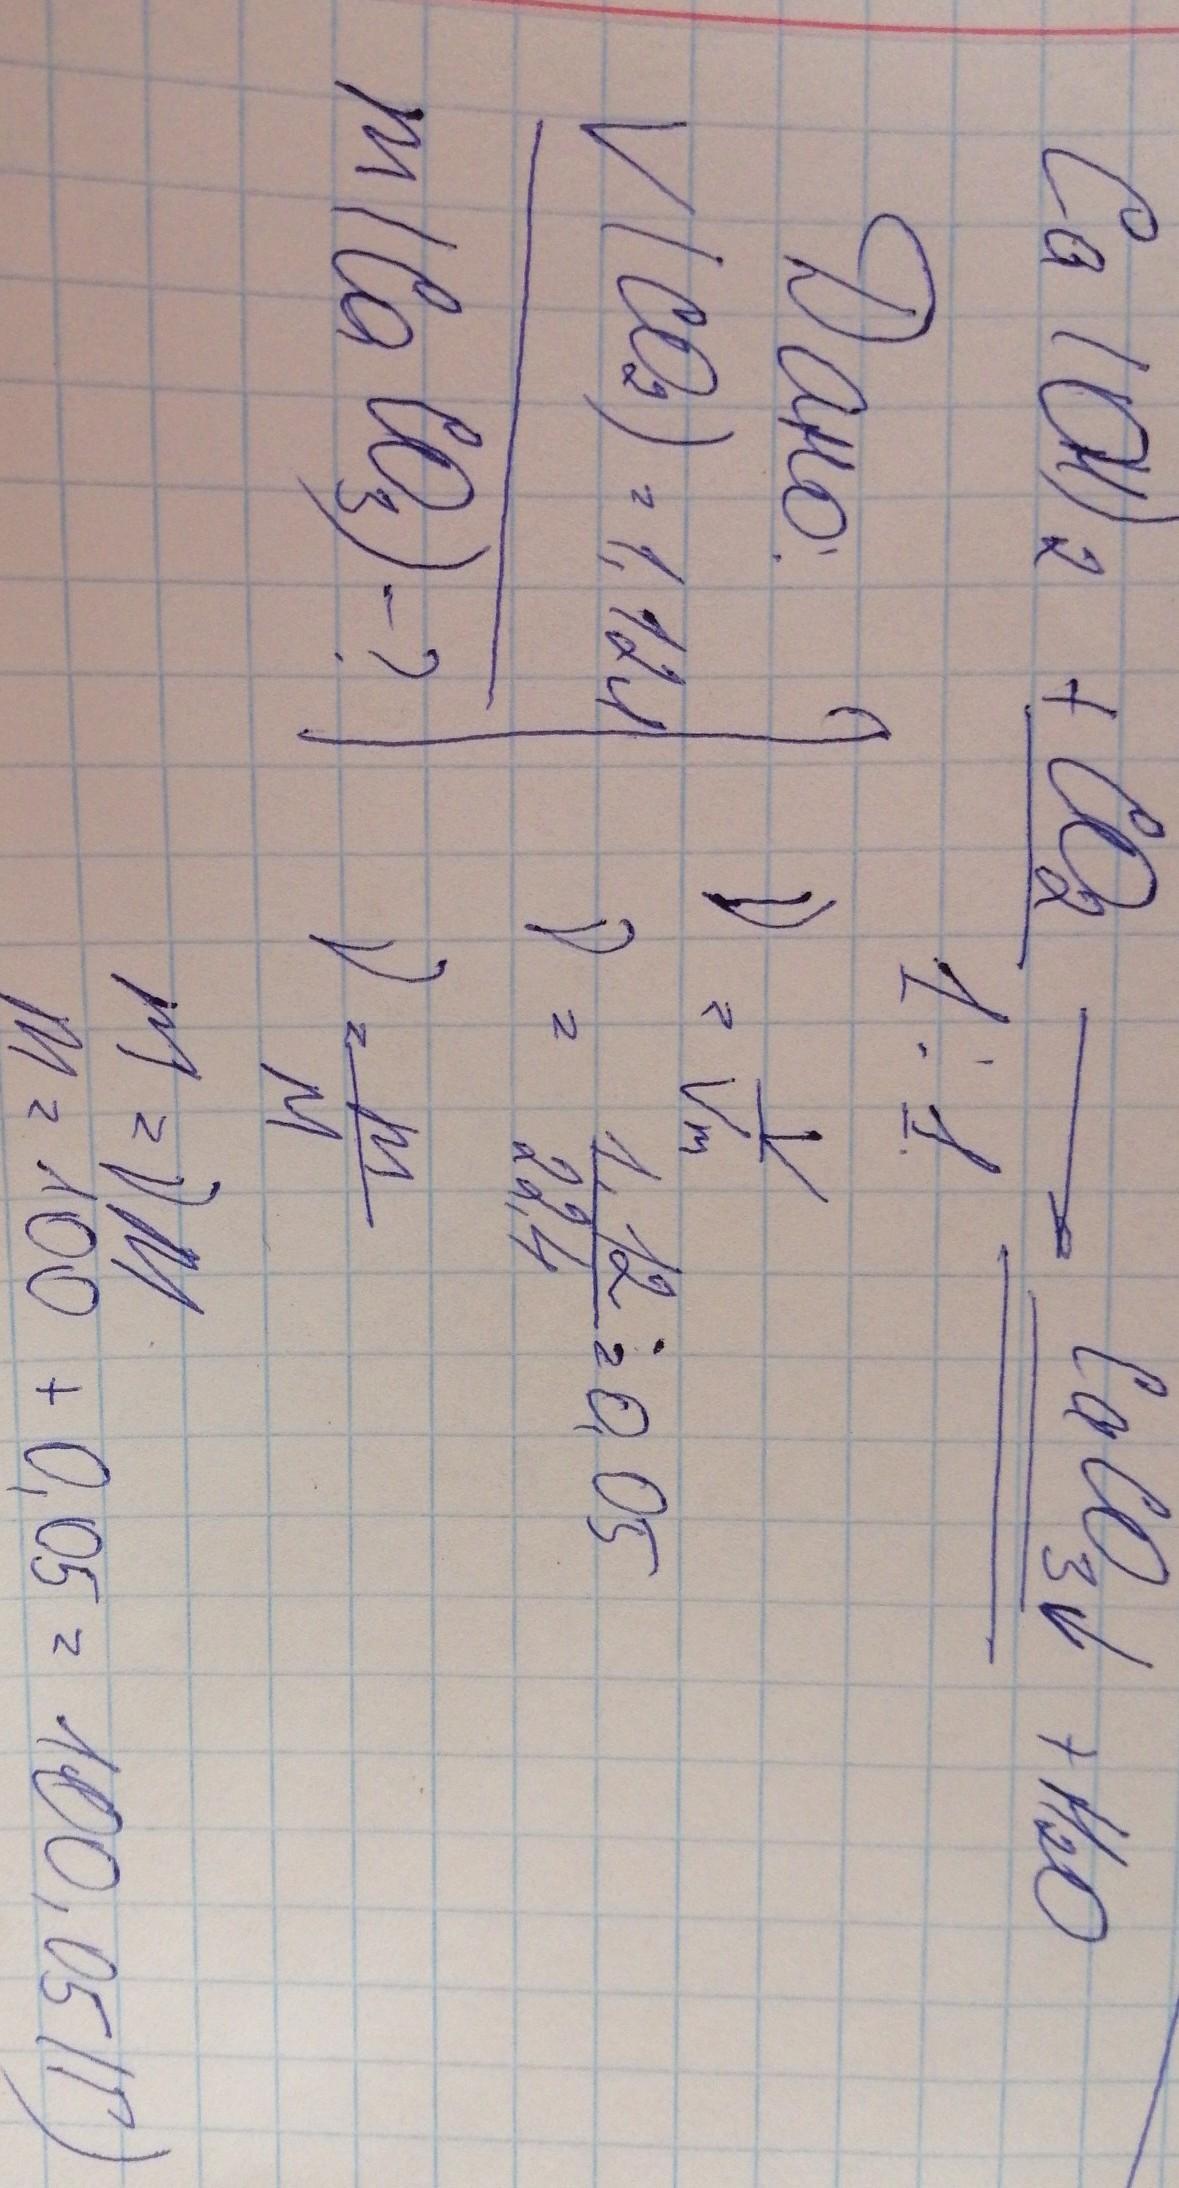 Ca(OH)2 + CO2 → CaCO3↓ + H2O
1 : 1
Дано:
V(CO2) = 1,12л
m(CaCO3) - ?
ν = V/Vm
ν = 1,12/22,4 = 0,05
ν = m/M
m = νM
m = 100 + 0,05 = 100,05 (г)